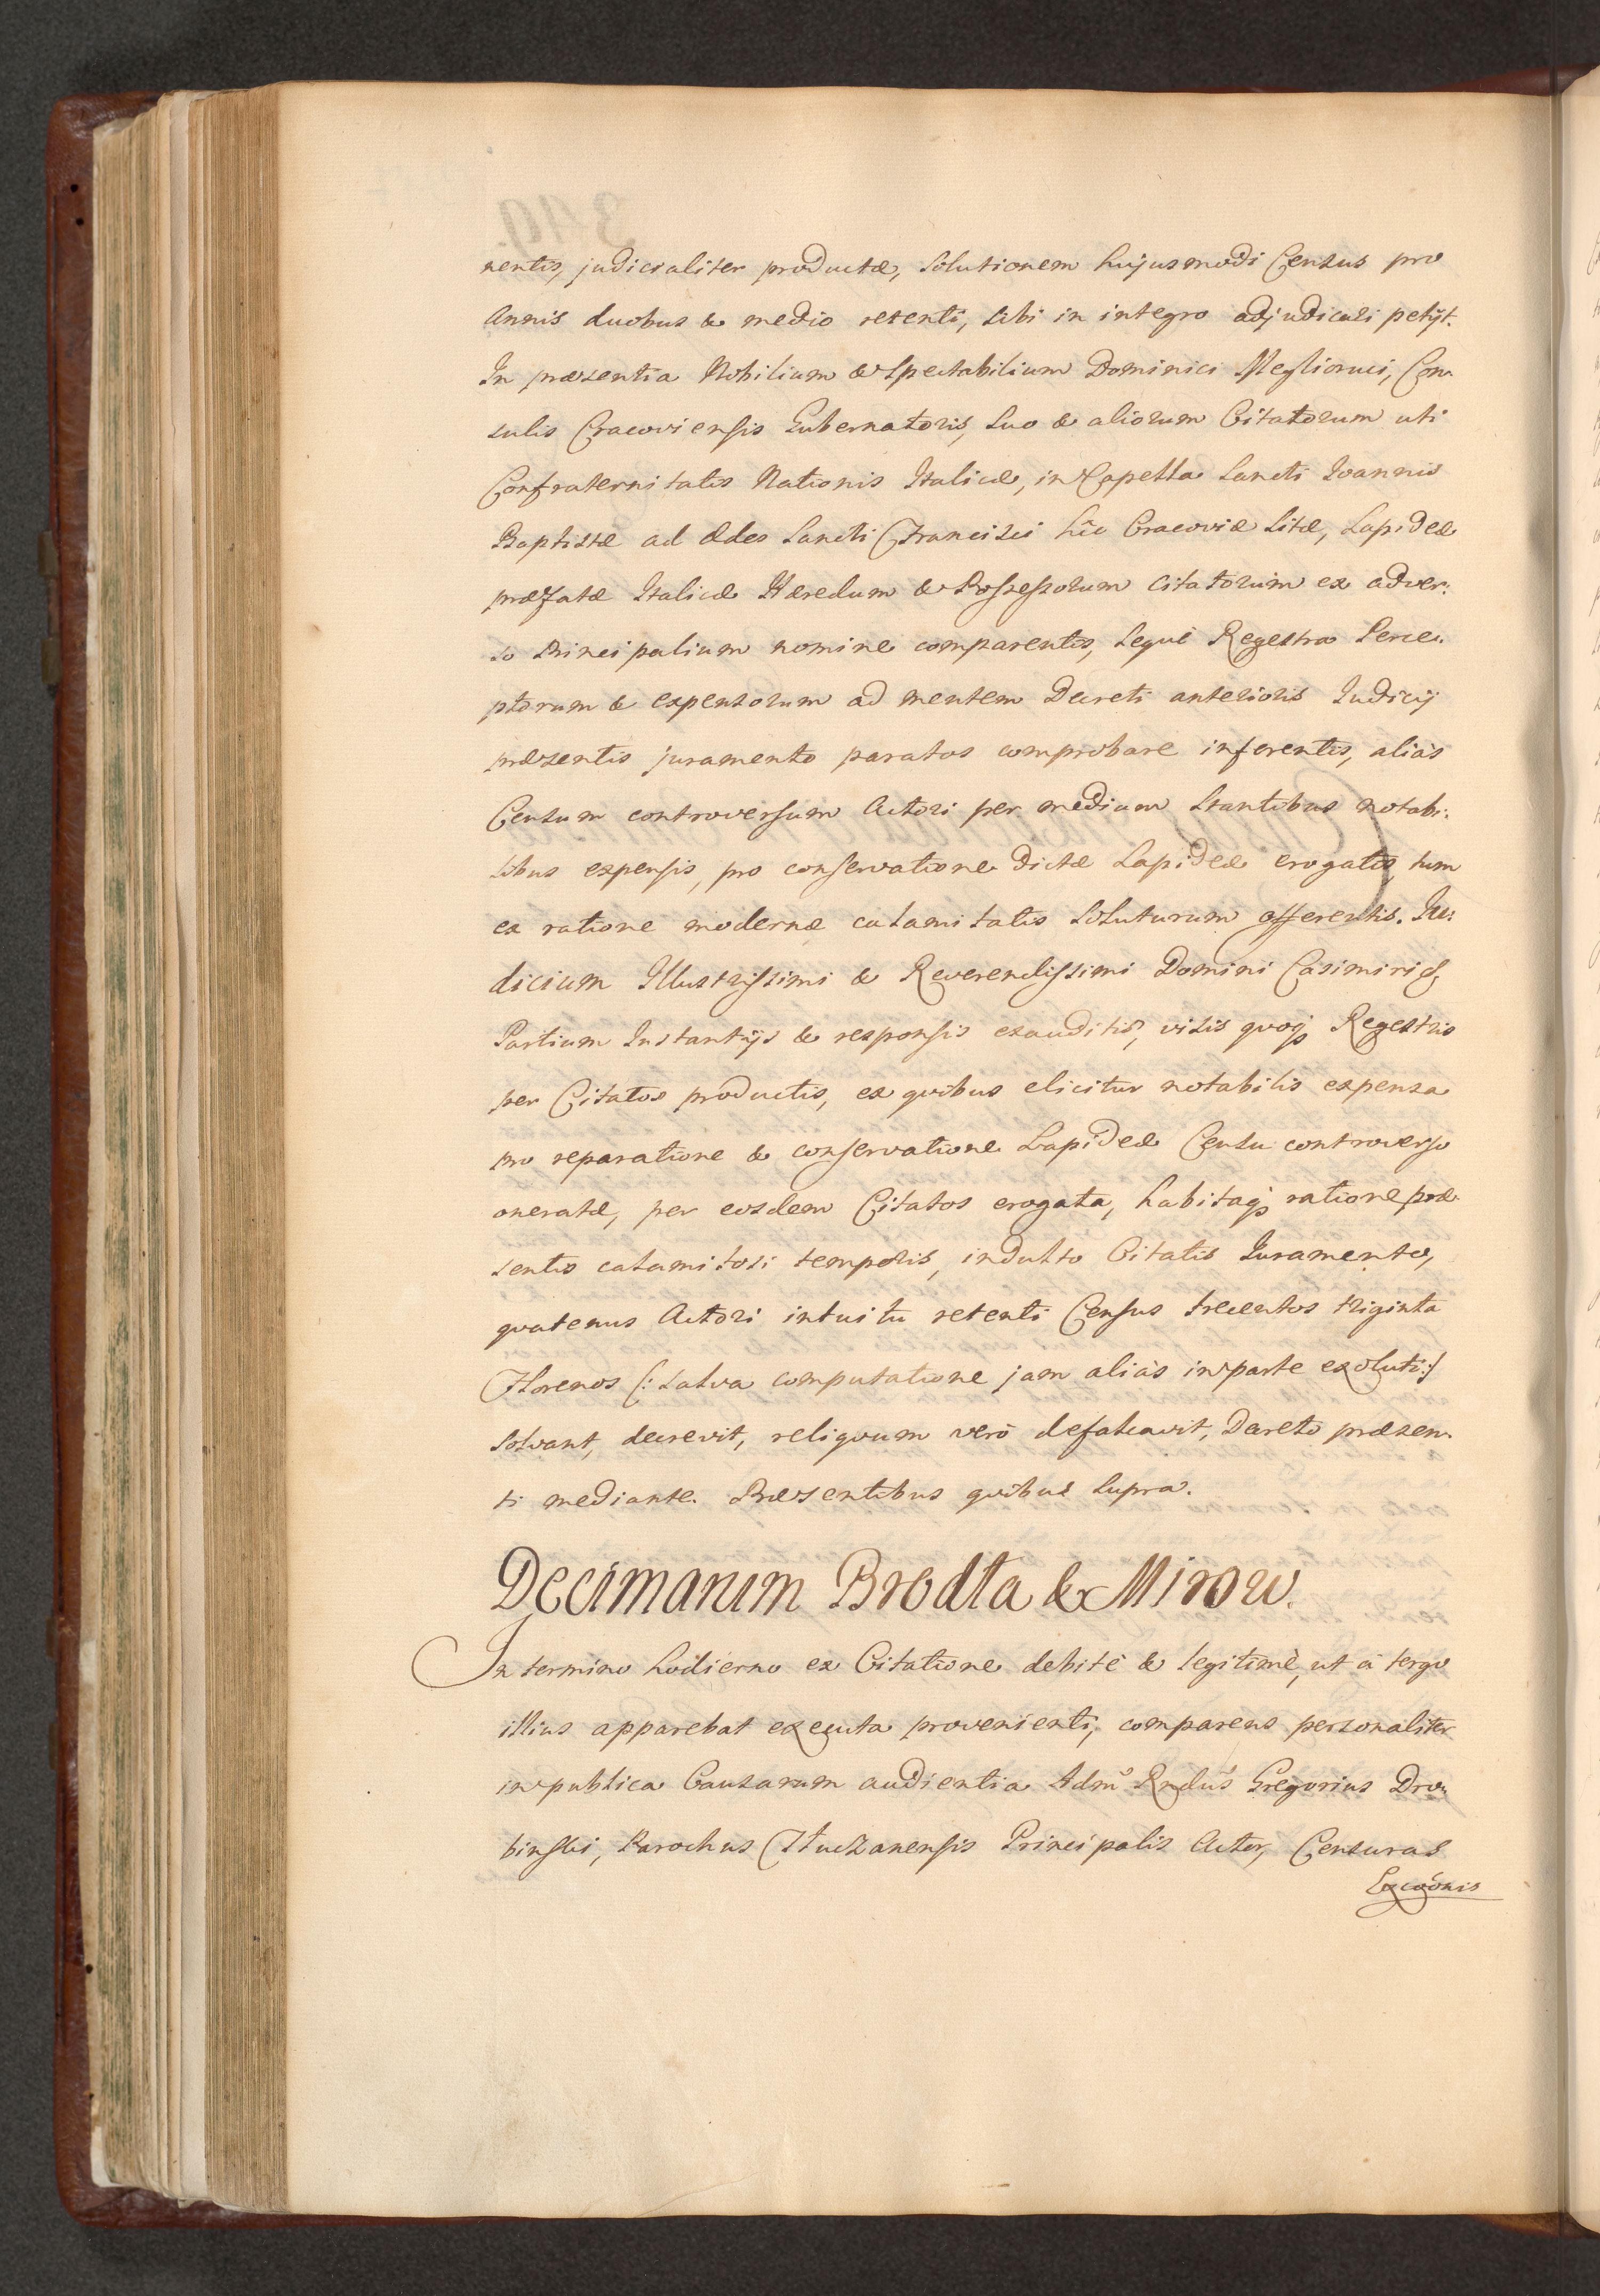 nentis, judicialiter productæ, solutionem hujusmodi Census pro
Annis duobus & medio retenti, sibi in integro adjudicari petijt.
In præsentia Nobilium & Spectabilium Dominici Meglioruci, Con-
sulis Cracoviensis Gubernatoris, suo & aliorum Citatorum uti
Confraternitatis Nationis Italicæ, in Capella Sancti Joannis
Baptistæ ad Ædes Sancti Francisci hîc Cracoviæ sitæ, Lapideæ
præfatæ Italicæ Hæredum & Possessorum Citatorum ex adver:
so Principalium nomine comparentis, seque Regestra Perce-
ptorum & expensorum ad mentem Decreti anterioris Judicij
præsentis juramento paratos comprobare inferentis, aliàs
Censum controversum Actori per medium stantibus notabi:
libus expensis, pro conservatione dictæ Lapideæ erogatis, tum
ex ratione modernæ calamitatis soluturum offerentis. Ju:
dicium Illustrissimi & Reverendissimi Domini Casimiri &
Partium Instantijs & responsis exauditis, visis quoq; Regestris
per Citatos productis, ex quibus elicitur notabilis expensa
pro reparatione & conservatione Lapideæ Censu controverso
oneratæ, per eosdem Citatos erogata, habitaq; ratione præ-
sentis calamitosi temporis, indulto Citatis Juramento,
quatenus Actori intuitu retenti Census trecentos triginta
Florenos (: salva computatione jam aliàs in parte exoluti :)
solvant, decrevit, reliquum verò defalcavit, Decreto præsen-
ti mediante. Præsentibus quibus supra.
Decimarum Brodta & Mirow.
In termino hodierno ex Citatione debitè & legitimè, ut à tergo
illius apparebat executa provenienti, comparens personaliter
in publica Causarum audientia Admˢ Rnduˢ Gregorius Dro-
binski, Parochus Fluczanensis Principalis Actor, Censuras
Excoõnis